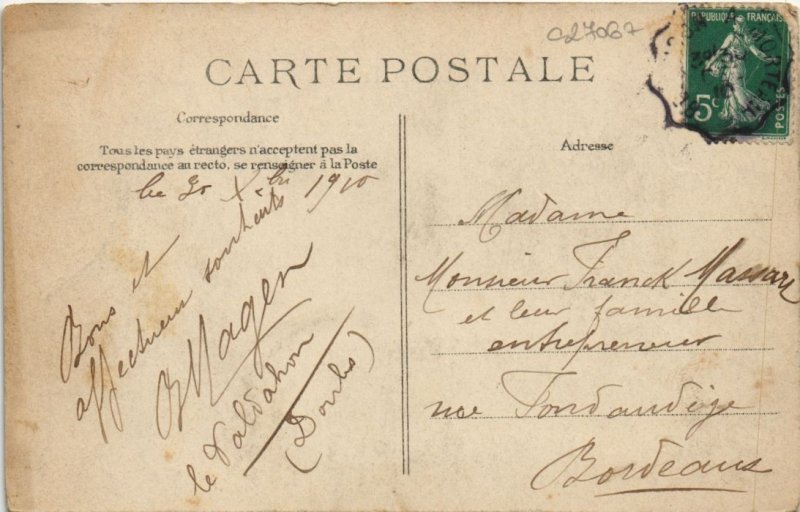 CL7067
RÉPUBLIQUE FRANÇAISE
5c
POSTES
CARTE POSTALE
Correspondance
Tous les pays étrangers n'acceptent pas la
correspondance au recto, se renseigner à la Poste
Le 30 Xbre 1910
Bons et
affectueux souhaits
Magen
le Valdahon
(Doubs)
Adresse
Madame
Monsieur Franck Massart
et leur famille
entrepreneur
rue Fondaudège
Bordeaux